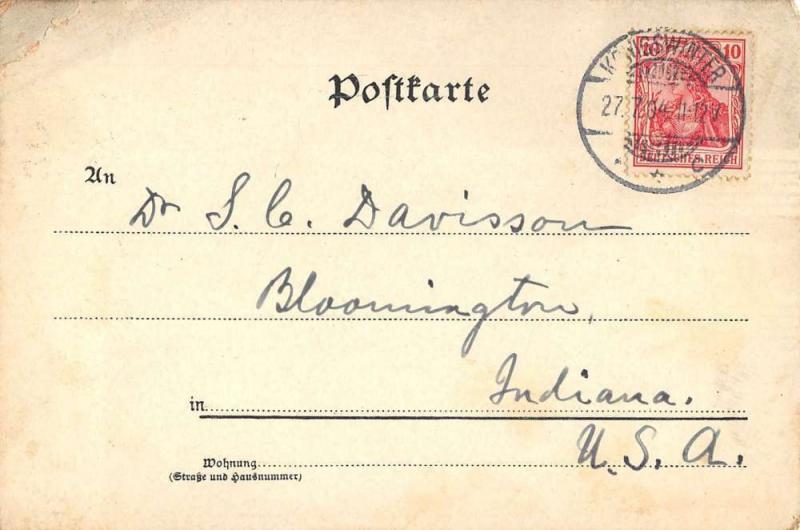 10 10
KÖNIGSWINTER
27.7.04 11-12V
C
DEUTSCHES REICH
Postkarte
An
Dr S. C. Davisson
Bloomington,
in Indiana.
U. S. A.
Wohnung
(Straße und Hausnummer)